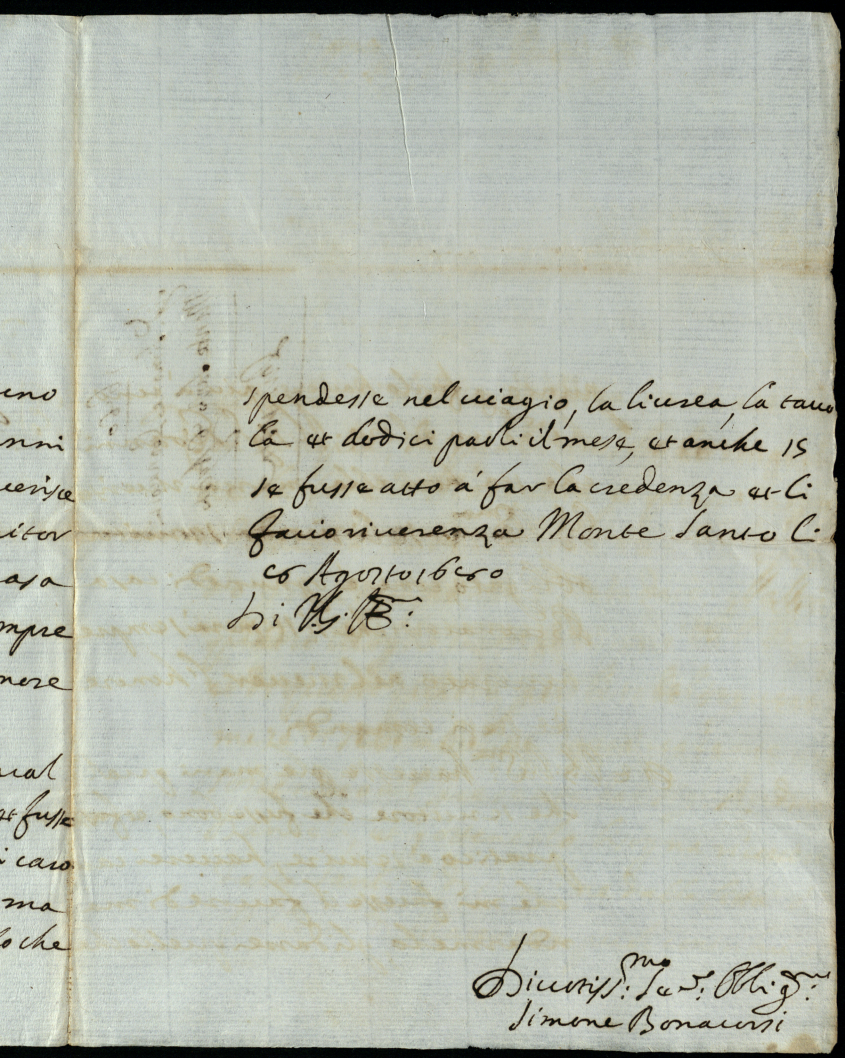 uno
nni
uerisce
itor
asa
mpre
nore
ual
et fusse
i caso
ma
lo che
spendesse nel uiagio, la liurea, la tauo
la et dodici paoli il mese, et anche 15
se fusse atto á far la credenza et li
faccio riuerenza Monte Santo li
Agosto
Di V. S.
Diuotiss:mo Se.re: Obligmo:
Simone Bonacorsi